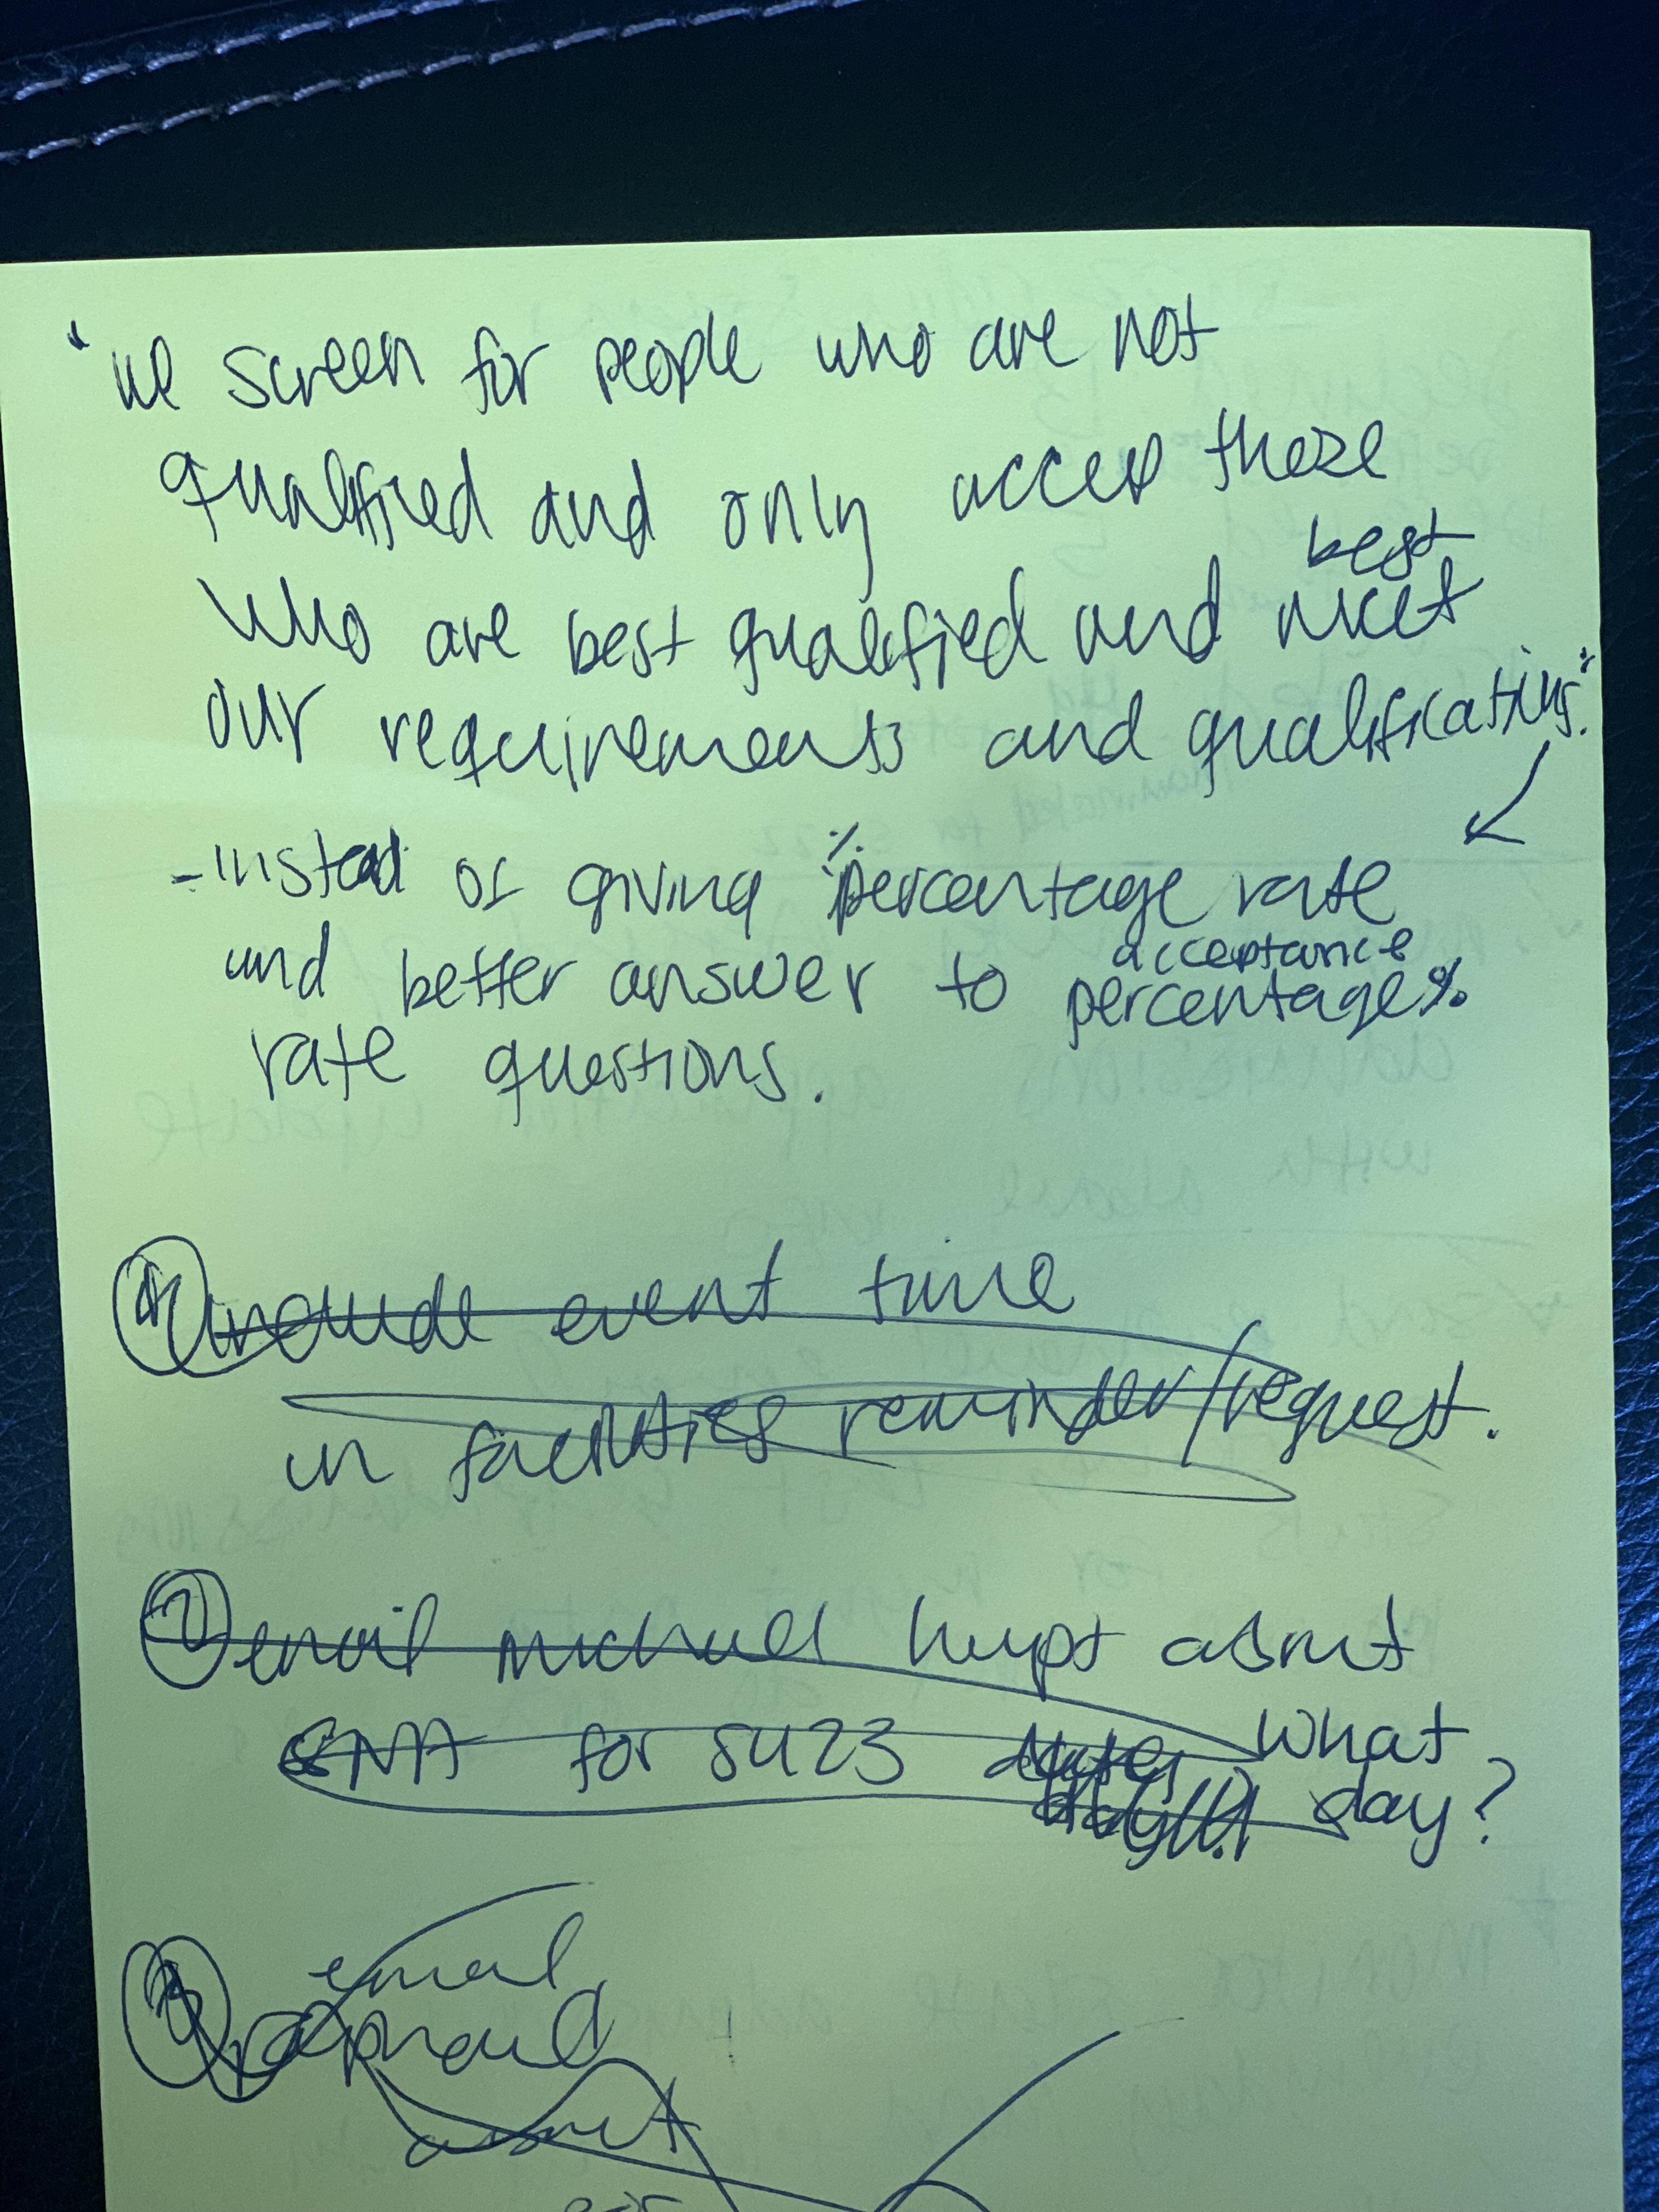 "we screen for people who are not
qualified and only accep those
who are best qualified and best meet
our requirements and qualifications."
- instead of giving % percentage rate
and better answer to acceptance percentage %
rate questions.
include event time
in facilities reminder/request.
② email michael about
for SU23 what
day?
email
about